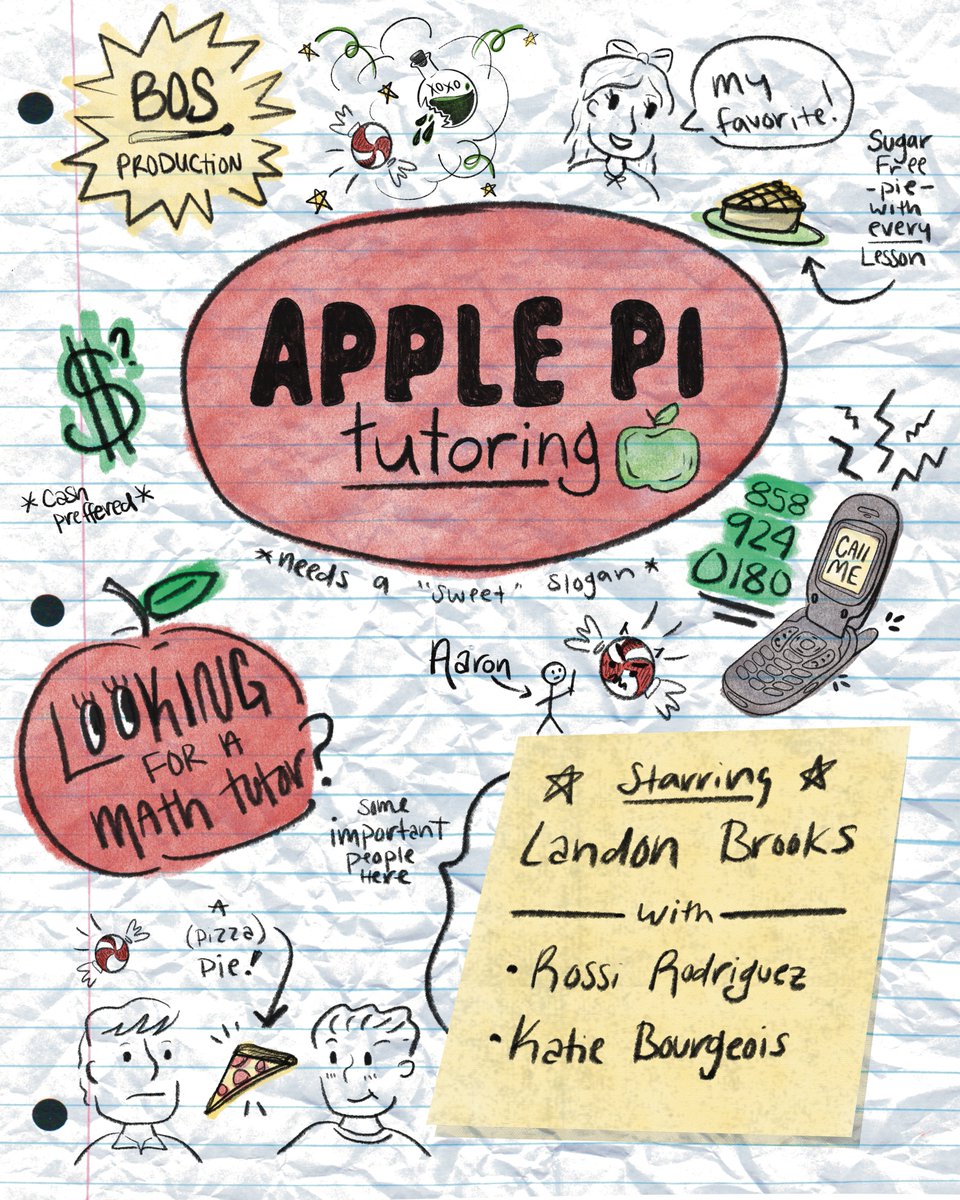 BOS
PRODUCTION
XOXO
my
favorite!
Sugar
Free
-pie-
with
every
Lesson
APPLE PI
tutoring
$?
*Cash
preffered*
*needs a "sweet" slogan*
858
924
0180
CAll
ME
Aaron
LOOKING
FOR A
MAth tutor?
Some
important
people
Here
A
(pizza)
pie!
Starring
Landon Brooks
with
• Rossi Rodriguez
• Katie Bourgeois